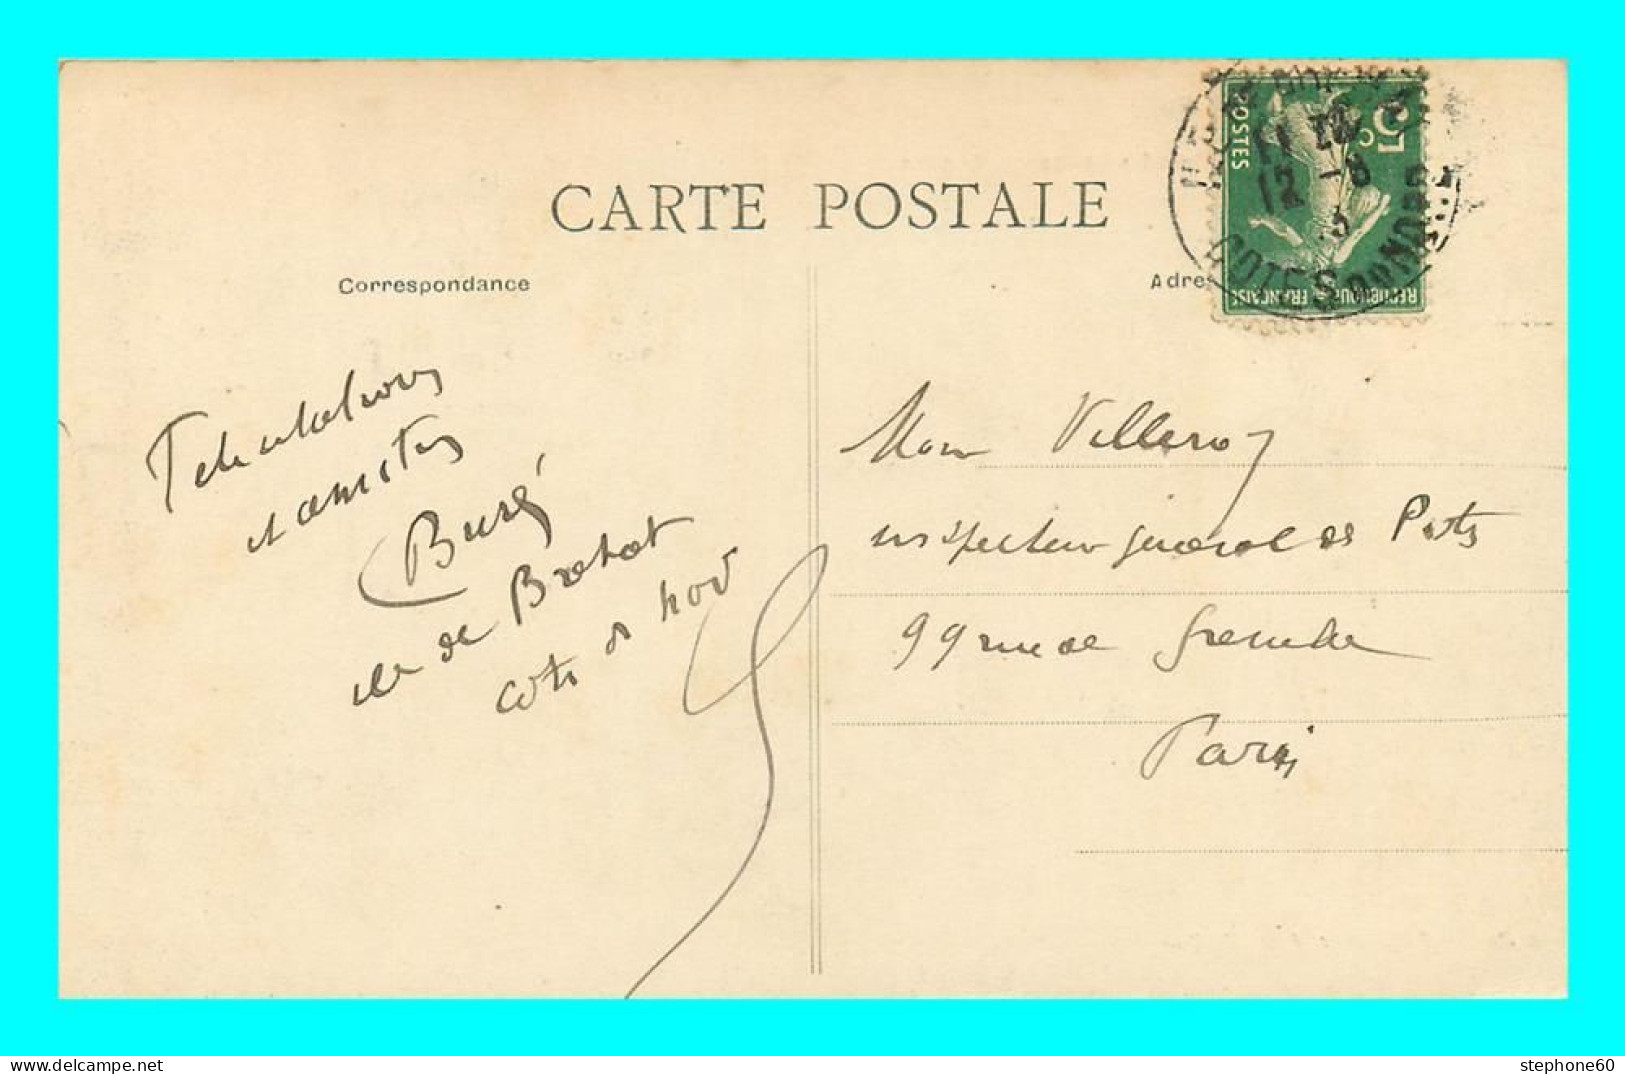 CARTE POSTALE
Correspondance
Adres
POSTES
5c
REPUBLIQUE FRANÇAISE
COTES DU NORD
12 -8
et amitiés
Buré
ile de Brehat
Cotes d nord
Mour Villeroy
inspecteur général des Postes
99 rue de Grenelle
Paris
stephone60